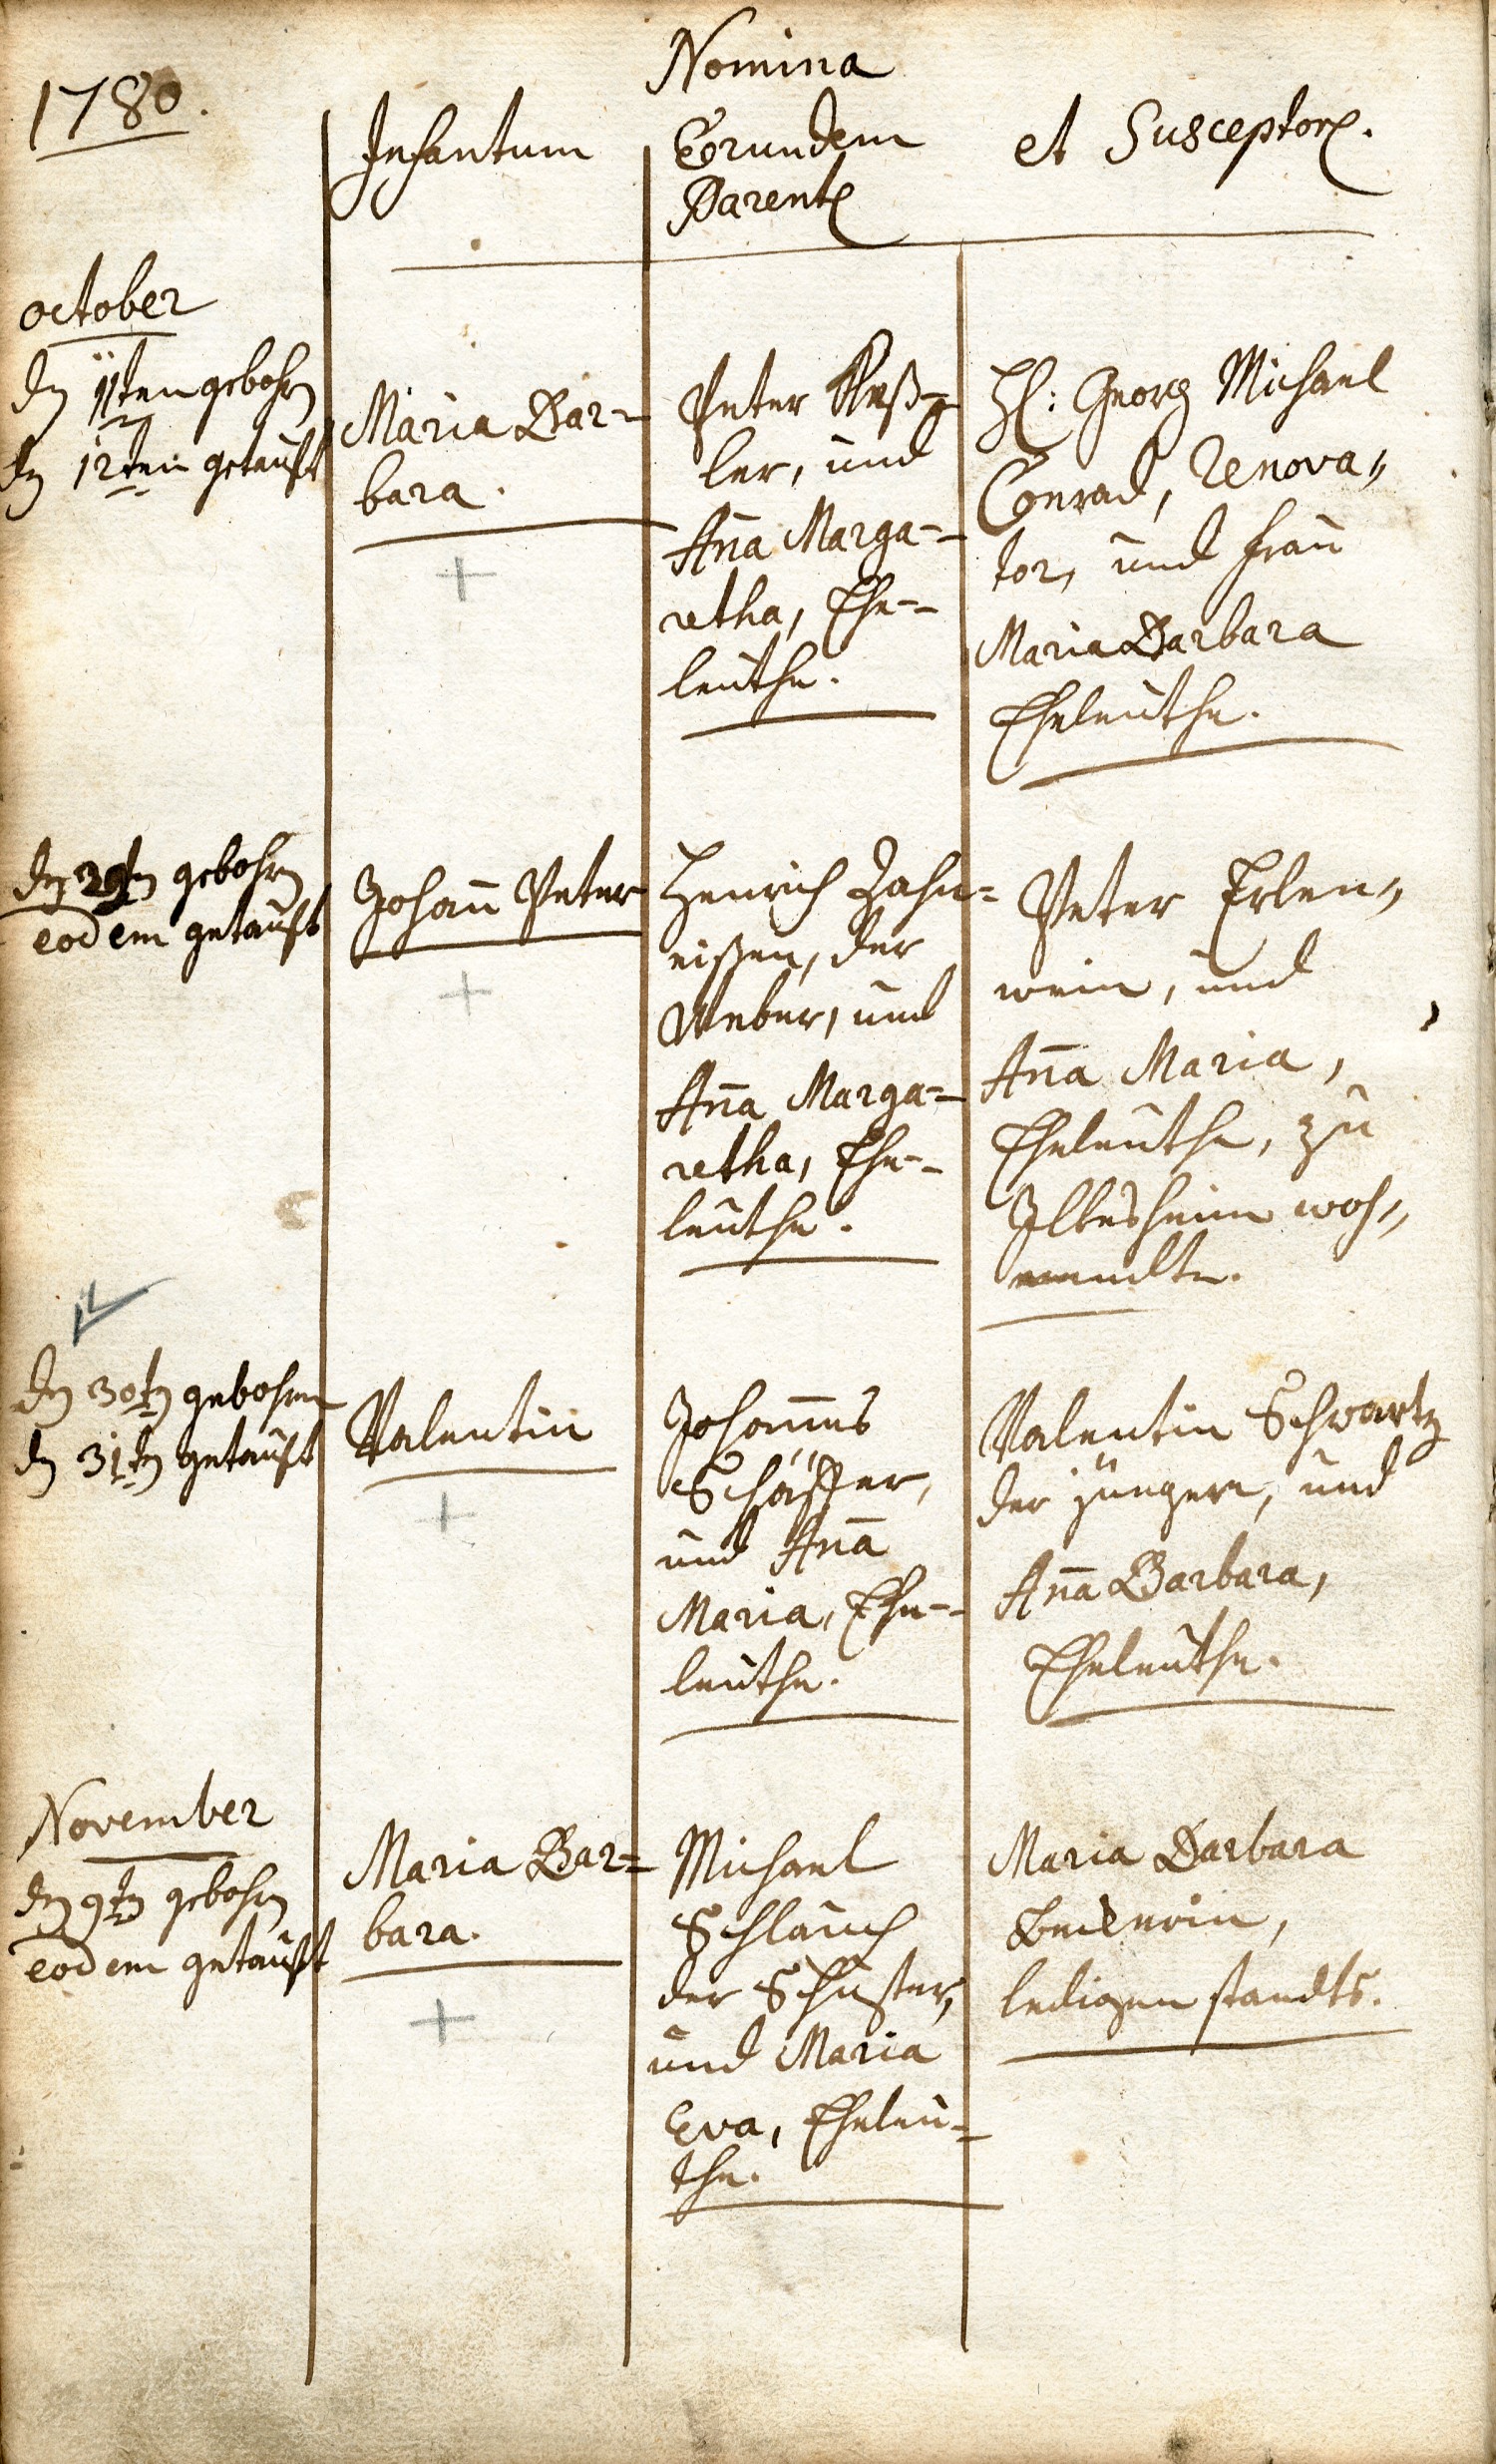 1780.
Nomina
Infantum
Eorundem
Parent
et Susceptor.
October
den 11ten gebohrn
den 12ten getauft
Maria Bar=
bara.
Peter Keß=
ler, und
Ana Marga=
retha, Ehe=
leuthe.
H: Georg Michael
Conrad, Renova„
tor, und Frau
Maria Barbara
Eheleuthe.
den 29ten gebohrn
eodem getauft
Johann Peter
Henrich Zahn=
eißen, der
Weber, und
Ana Marga=
retha, Ehe=
leuthe.
Peter Erlen„
wein, und
Ana Maria,
Eheleuthe, zu
Ilbesheim woh„
den 30ten gebohren
den 31ten getauft
Valentin
Johannes
Schäffer,
und Ana
Maria, Ehe=
leuthe.
Valentin Schwartz
der jüngere, und
Ana Barbara,
Eheleuthe.
November
den 9ten gebohrn
eodem getauft
Maria Bar=
bara.
Michael
Schlauch
der Schuster,
und Maria
Eva, Eheleu=
the.
Maria Barbara
ledigen standts.